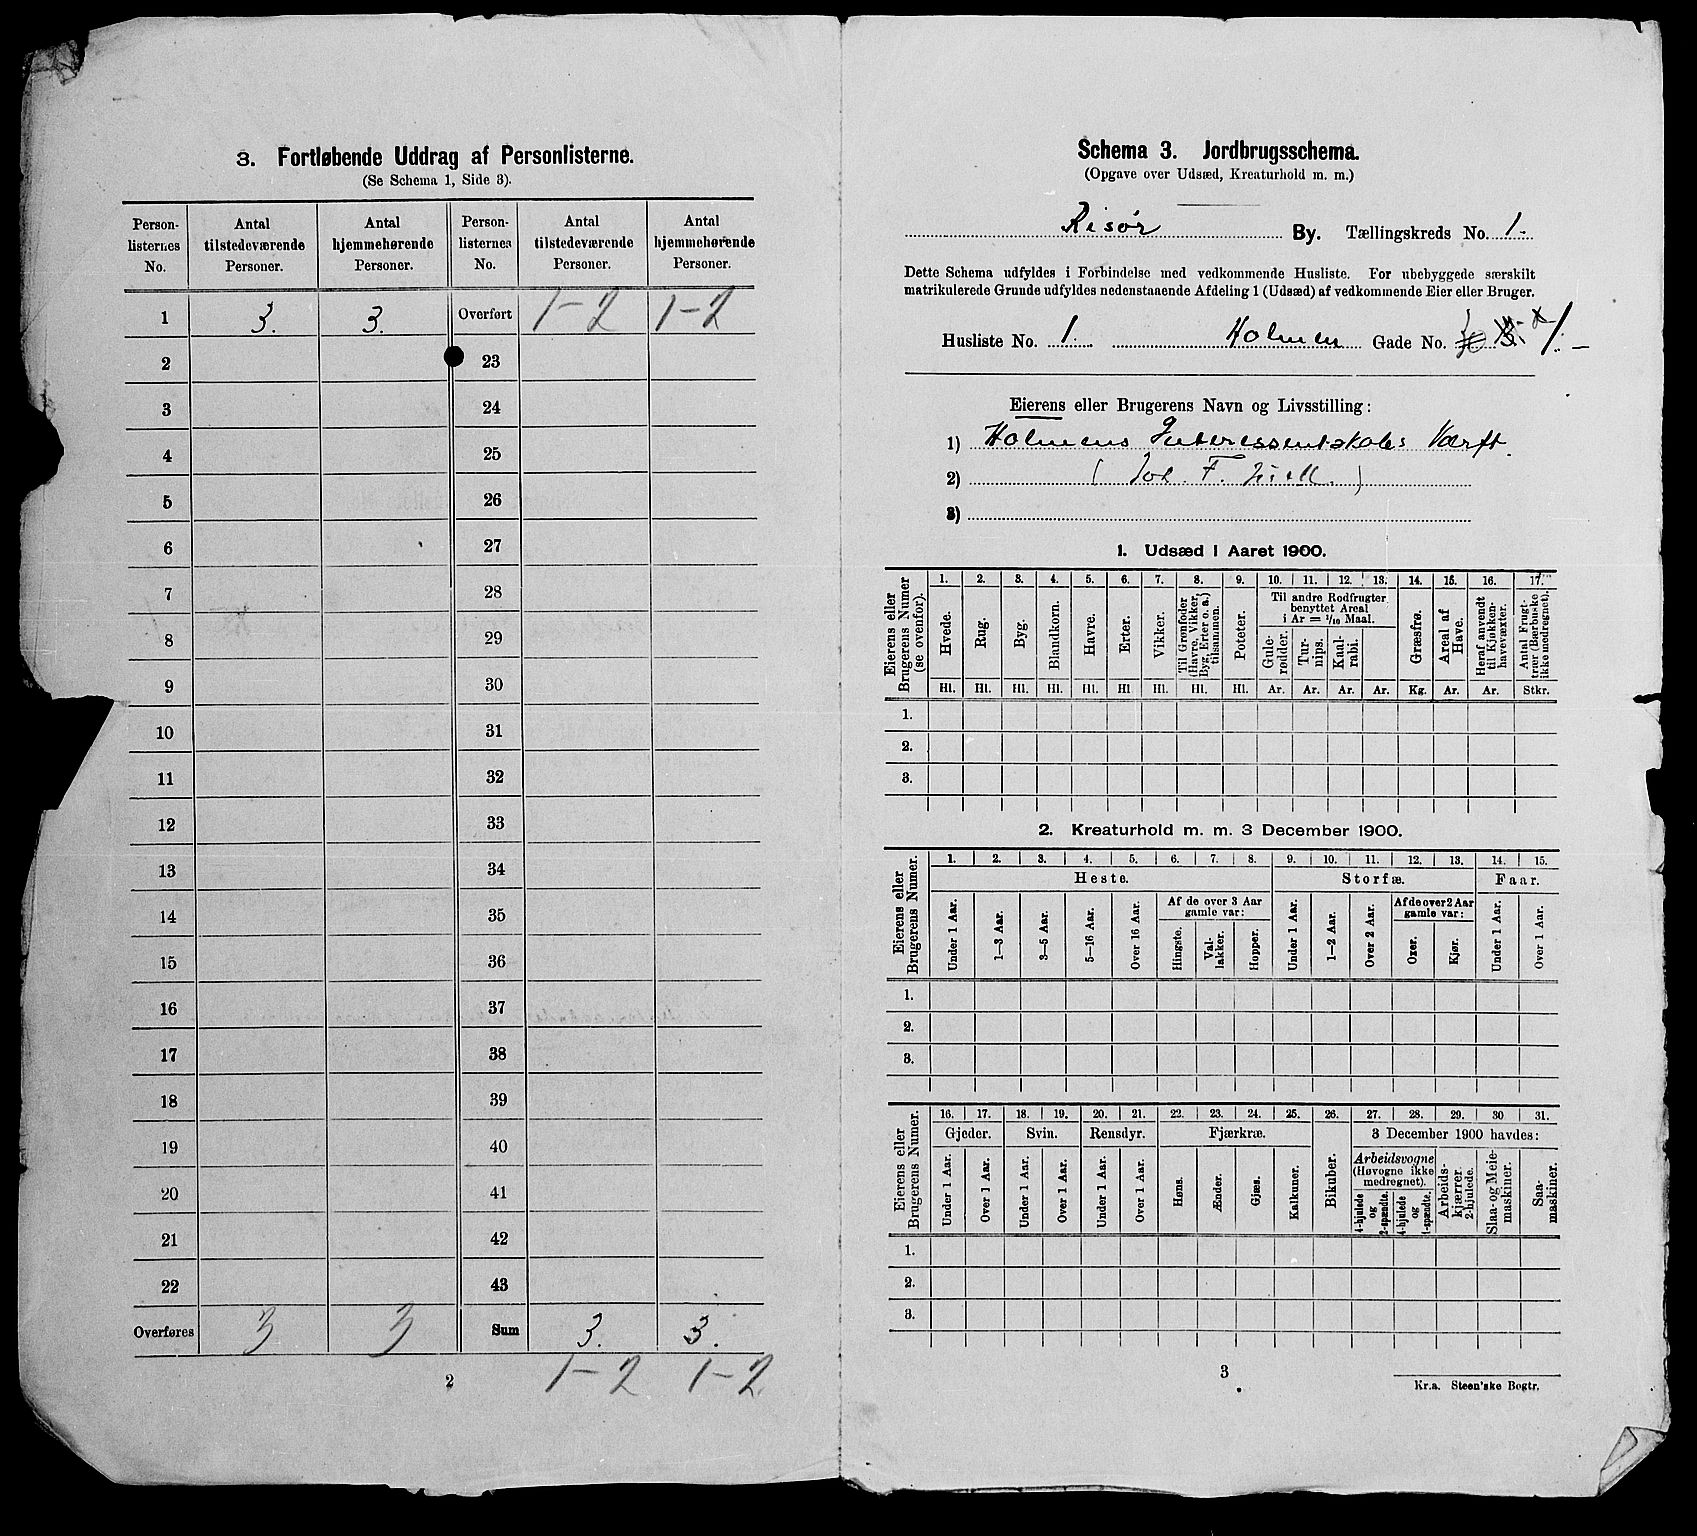 3. Fortløbende Uddrag af Personlisterne.
(Se Schema 1, Side 3).
Person-listernes No. Antal tilstedeværende Personer. Antal hjemmehørende Personer. Person-listernes No. Antal tilstedeværende Personer. Antal hjemmehørende Personer.
1 3. 3. Overført 1-2 1-2
2 23
3 24
4 25
5 26
6 27
7 28
8 29
9 30
10 31
11 32
12 33
13 34
14 35
15 36
16 37
17 38
18 39
19 40
20 41
21 42
22 43
Overføres 3 3 Sum 3. 3.
1-2 1-2
2
Schema 3. Jordbrugsschema.
(Opgave over Udsæd, Kreaturhold m. m.)
Risør By. Tællingskreds No. 1.
Dette Schema udfyldes i Forbindelse med vedkommende Husliste. For ubebyggede særskilt
matrikulerede Grunde udfyldes nedenstaaende Afdeling 1 (Udsæd) af vedkommende Eier eller Bruger.
Husliste No. 1. Holmen Gade No. 1.
Eierens eller Brugerens Navn og Livsstilling:
1) Holmens Interessentskabs Værft.
2) F.
3)
1. Udsæd i Aaret 1900.
Eierens eller Brugerens Numer (se ovenfor).
1. 2. 3. 4. 5. 6. 7. 8. 9. 10. 11. 12. 13. 14. 15. 16. 17.
Til andre Rodfrugter benyttet Areal i Ar = 1/10 Maal.
Hvede. Rug. Byg. Blandkorn. Havre. Erter. Vikker. Til Grønfoder (Havre, Vikker, Byg, Erter o. a.) tilsammen. Poteter. Gule-rødder. Tur-nips. Kaal-rabi. Græsfrø. Areal af Have. Heraf anvendt til Kjøkken-havevæxter. Antal Frugt-trær (Bærbuske ikke medregnet).
Hl. Hl. Hl. Hl. Hl. Hl Hl. Hl. Hl. Ar. Ar. Ar. Ar. Kg. Ar. Ar. Stkr.
1.
2.
3.
2. Kreaturhold m. m. 3 December 1900.
Eierens eller Brugerens Numer.
1. 2. 3. 4. 5. 6. 7. 8. 9. 10. 11. 12. 13. 14. 15.
Heste. Storfæ. Faar.
Af de over 3 Aar gamle var: Af de over 2 Aar gamle var:
Under 1 Aar. 1—3 Aar. 3—5 Aar. 5—16 Aar. Over 16 Aar. Hingste. Val-lakker. Hopper. Under 1 Aar. 1—2 Aar. Over 2 Aar. Oxer. Kjør. Under 1 Aar. Over 1 Aar.
1.
2.
3.
Eierens eller Brugerens Numer.
16. 17. 18. 19. 20. 21. 22. 23. 24. 25. 26. 27. 28. 29. 30. 31.
Gjeder. Svin. Rensdyr. Fjærkræ. Bikuber. 3 December 1900 havdes:
Arbeidsvogne (Høvogne ikke medregnet).
Under 1 Aar. Over 1 Aar. Under 1 Aar. Over 1 Aar. Under 1 Aar. Over 1 Aar. Høns. Ænder. Gjæs. Kalkuner. 4-hjulede og 2-spændte. 4-hjulede og 1-spændte. Arbeids-kjærrer 2-hjulede. Slaa- og Meie-maskiner. Saa-maskiner.
1.
2.
3.
3
Kr.a. Steen'ske Bogtr.